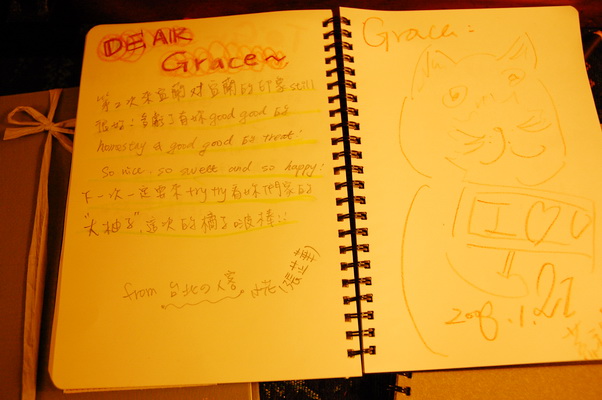 DEAR
Grace~
第2次來宜蘭對宜蘭的印象still
good good的
homestay & good good的treat!
So nice, so sweet and so happy!
下一次一定要來try try看妳們家的
"大柚子",這次的橘子很棒!!
from 台北的人客
Grace:
I ♡ U
2008.1.21